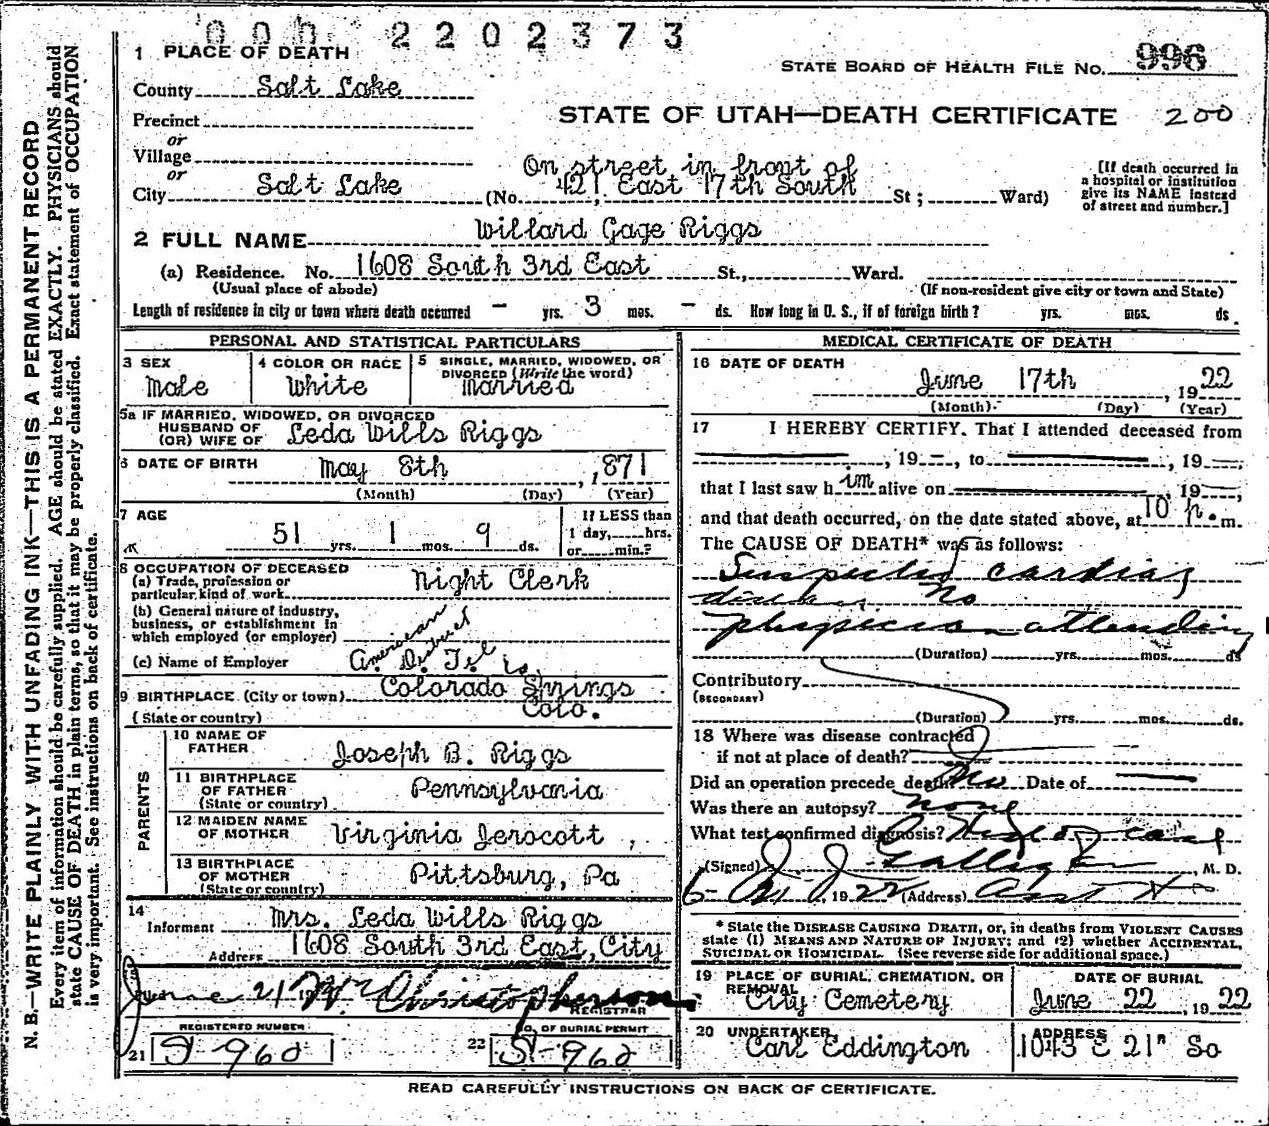 000 2202373
1 PLACE OF DEATH
STATE BOARD OF HEALTH FILE No. 996
County Salt Lake
STATE OF UTAH—DEATH CERTIFICATE 200
Precinct
or
Village
or
City Salt Lake
On street in front of
(No. 421, East 17th South St; Ward)
[If death occurred in
a hospital or institution
give its NAME instead
of street and number.]
2 FULL NAME Willard Gage Riggs
(a) Residence. No. 1608 South 3rd East St., Ward.
(Usual place of abode)
(If non-resident give city or town and State)
Length of residence in city or town where death occurred — yrs. 3 mos. — ds. How long in U. S., if of foreign birth? yrs. mos. ds.
PERSONAL AND STATISTICAL PARTICULARS
3 SEX
Male
4 COLOR OR RACE
White
5 SINGLE, MARRIED, WIDOWED, OR
DIVORCED (Write the word)
Married
5a IF MARRIED, WIDOWED, OR DIVORCED
HUSBAND OF
(OR) WIFE OF Leda Wills Riggs
6 DATE OF BIRTH May 8th, 1871
(Month) (Day) (Year)
7 AGE
51 yrs. 1 mos. 9 ds.
If LESS than
1 day, hrs.
or min.?
8 OCCUPATION OF DECEASED
(a) Trade, profession or
particular kind of work Night Clerk
(b) General nature of industry,
business, or establishment in
which employed (or employer)
(c) Name of Employer American District Tel Co.
9 BIRTHPLACE (City or town) Colorado Springs
(State or country) Colo.
PARENTS
10 NAME OF
FATHER Joseph B. Riggs
11 BIRTHPLACE
OF FATHER Pennsylvania
(State or country)
12 MAIDEN NAME
OF MOTHER Virginia Jerocott,
13 BIRTHPLACE
OF MOTHER Pittsburg, Pa
(State or country)
14
Informant Mrs. Leda Wills Riggs
Address 1608 South 3rd East, City
June 21 19 W. Christopherson
REGISTRAR
REGISTERED NUMBER
21 S-960
NO. OF BURIAL PERMIT
22 S-960
MEDICAL CERTIFICATE OF DEATH
16 DATE OF DEATH
June 17th, 1922
(Month) (Day) (Year)
17 I HEREBY CERTIFY, That I attended deceased from
—, 19 —, to —, 19 —,
that I last saw him alive on —, 19 —,
and that death occurred, on the date stated above, at 10 p. m.
The CAUSE OF DEATH* was as follows:
Suspected cardiac
disease. No
physician attending
(Duration) yrs. mos. ds
Contributory
(SECONDARY)
(Duration) yrs. mos. ds.
18 Where was disease contracted
if not at place of death?
Did an operation precede death? No Date of —
Was there an autopsy? none
What test confirmed diagnosis? of case
(Signed) J. J. Galligan, M. D.
1922 (Address) Asst
* State the DISEASE CAUSING DEATH, or, in deaths from VIOLENT CAUSES
state (1) MEANS AND NATURE OF INJURY; and (2) whether ACCIDENTAL,
SUICIDAL OR HOMICIDAL. (See reverse side for additional space.)
19 PLACE OF BURIAL, CREMATION, OR
REMOVAL
City Cemetery
DATE OF BURIAL
June 22, 1922
20 UNDERTAKER
Carl Eddington
ADDRESS
1043 E 21st So
READ CAREFULLY INSTRUCTIONS ON BACK OF CERTIFICATE.
N. B.—WRITE PLAINLY WITH UNFADING INK—THIS IS A PERMANENT RECORD
Every item of information should be carefully supplied. AGE should be stated EXACTLY. PHYSICIANS should
state CAUSE OF DEATH in plain terms, so that it may be properly classified. Exact statement of OCCUPATION
is very important. See instructions on back of certificate.